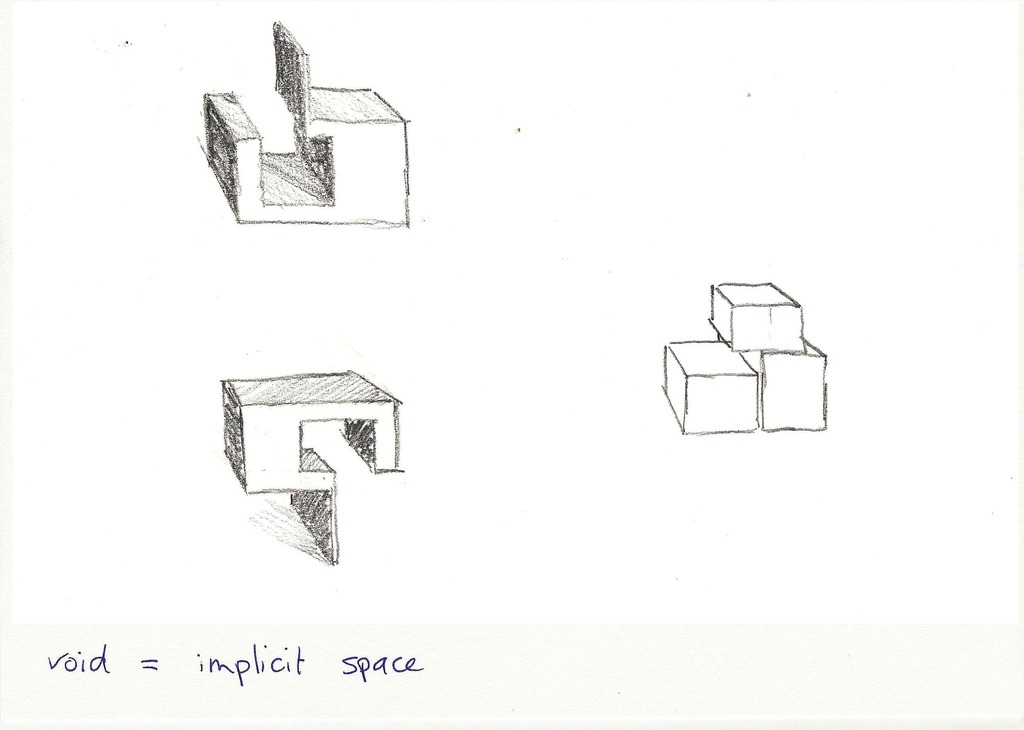 void = implicit space